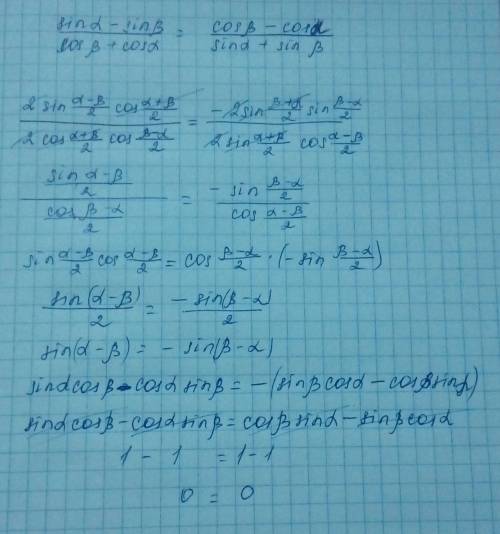 (sinα − sinβ)/(cosβ + cosα) = (cosβ − cosα)/(sinα + sinβ)
(2 sin (α−β)/2 cos (α+β)/2)/(2 cos (α+β)/2 cos (β−α)/2) = (−2 sin (β+α)/2 sin (β−α)/2)/(2 sin (α+β)/2 cos (α−β)/2)
(sin (α−β)/2)/(cos (β−α)/2) = (−sin (β−α)/2)/(cos (α−β)/2)
sin (α−β)/2 cos (α−β)/2 = cos (β−α)/2 · (−sin (β−α)/2)
sin(α−β)/2 = −sin(β−α)/2
sin(α−β) = −sin(β−α)
sinα cosβ − cosα sinβ = −(sinβ cosα − cosβ sinβ)
sinα cosβ − cosα sinβ = cosβ sinα − sinβ cosα
1 − 1 = 1−1
0 = 0